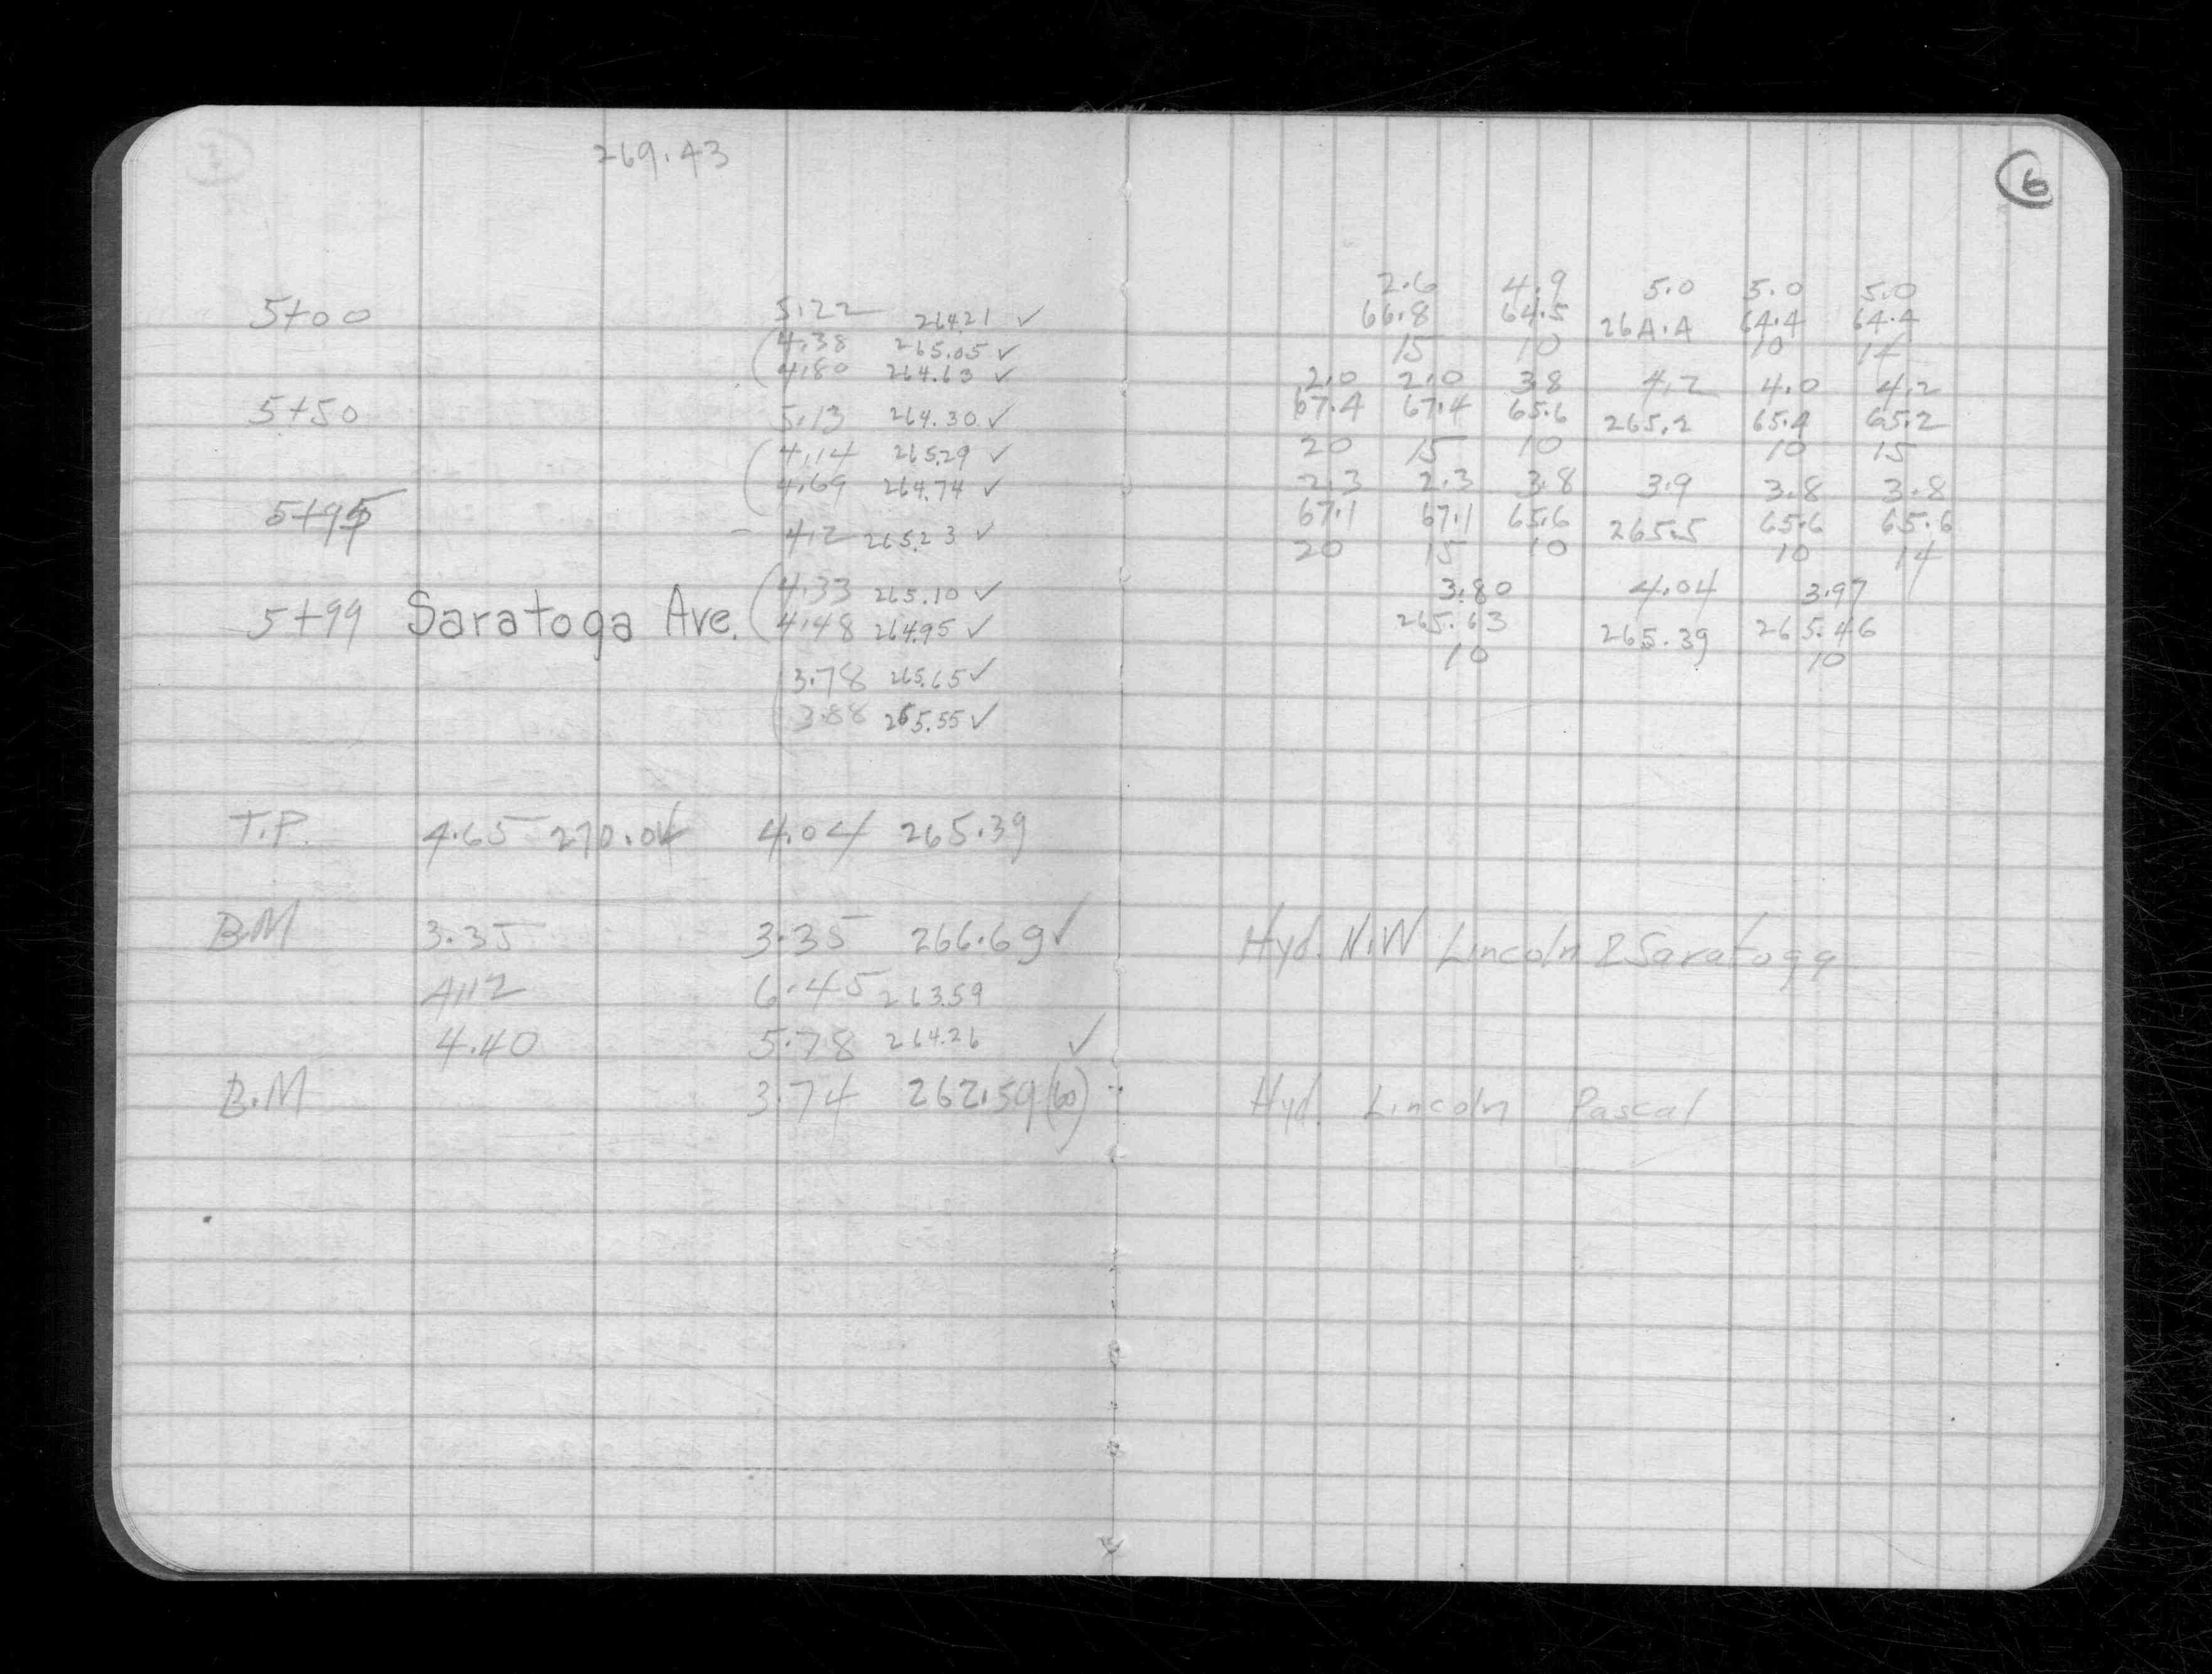 269.43
5+00 5.22 264.21 ✓
(4.38 265.05 ✓
4.80 264.63 ✓
5+50 5.13 264.30 ✓
(4.14 265.29 ✓
4.69 264.74 ✓
5+95
- 4.2 265.23 ✓
(4.33 265.10 ✓
5+99 Saratoga Ave. 4.48 264.95 ✓
(3.78 265.65 ✓
3.88 265.55 ✓
T.P. 4.65 270.04 4.04 265.39
B.M 3.35 3.35 266.69 ✓
4.12 6.45 263.59
4.40 5.78 264.26 ✓
B.M 3.74 262.59 (60)
6
2.6 4.9 5.0 5.0 5.0
66.8 64.5 264.4 64.4 64.4
15 10 10 14
2.0 2.0 3.8 4.2 4.0 4.2
67.4 67.4 65.6 265.2 65.4 65.2
20 15 10 10 15
2.3 2.3 3.8 3.9 3.8 3.8
67.1 67.1 65.6 265.5 65.6 65.6
20 15 10 10 14
3.80 4.04 3.97
265.63 265.39 265.46
10 10
Hyd. N.W Lincoln & Saratoga
Hyd. Lincoln Pascal